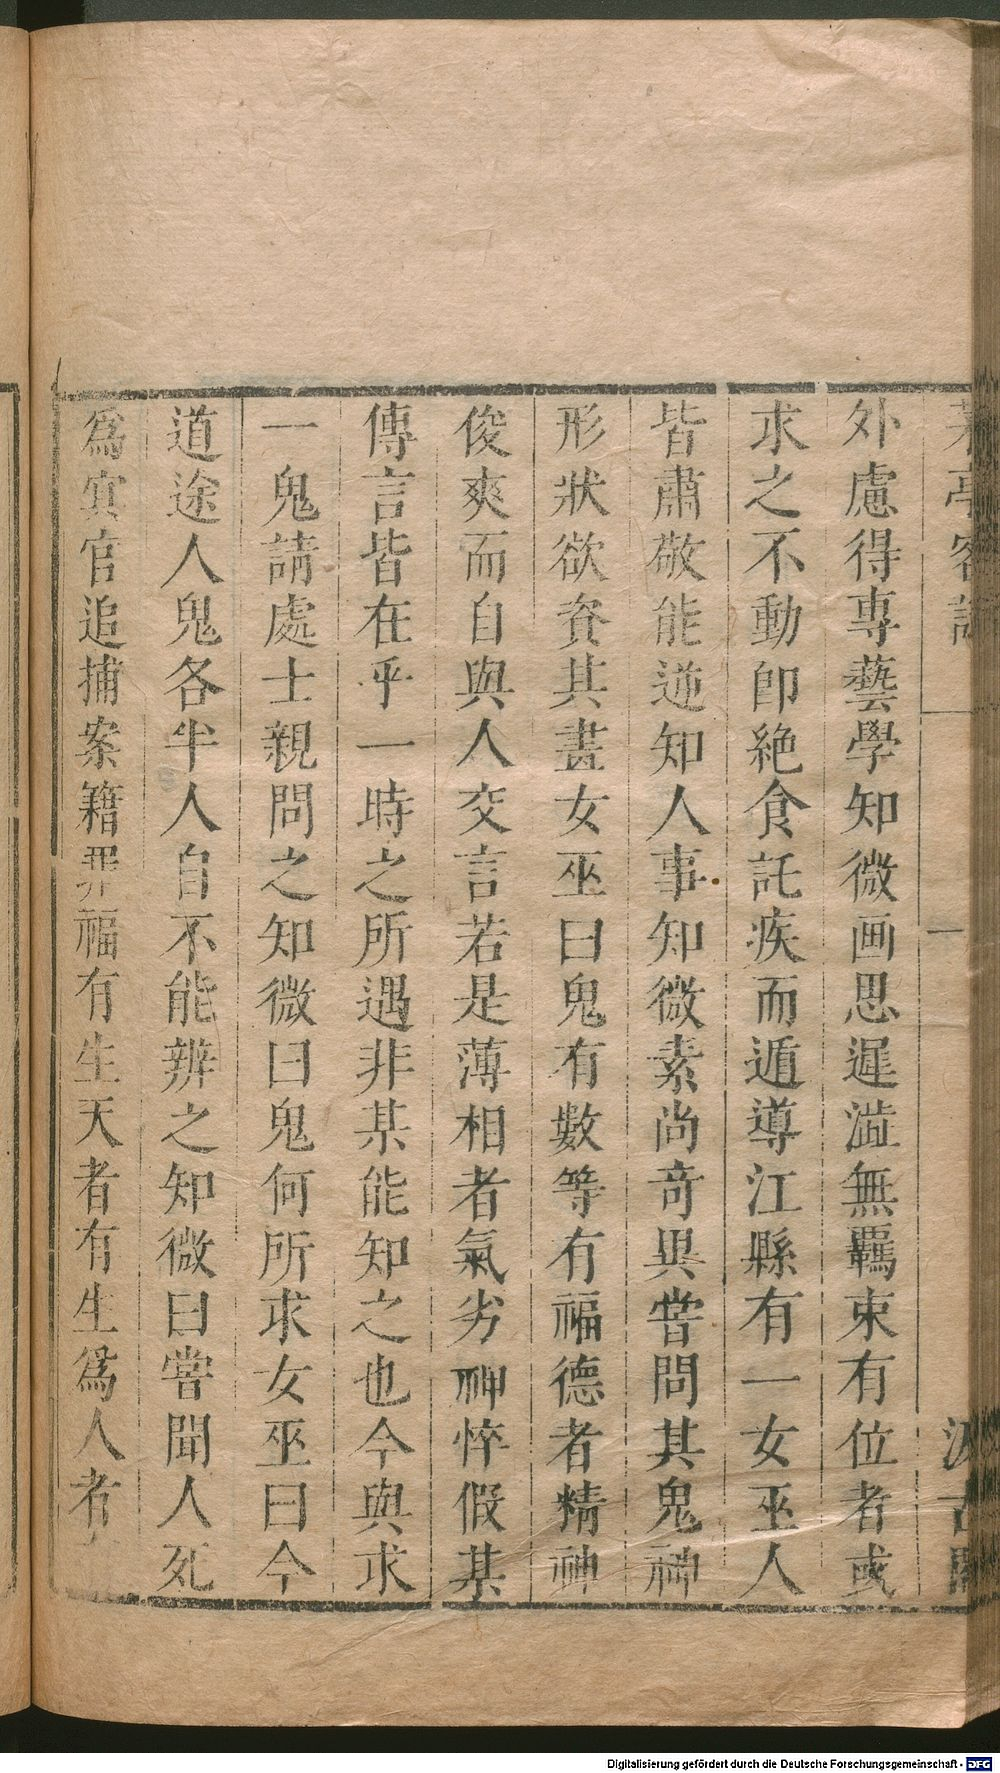 茅亭客話
一
汲古閣
外慮得專藝學知微画思遲澁無羈束有位者或
求之不動卽絶食託疾而遁導江縣有一女巫人
皆肅敬能逆知人事知微素尚奇異嘗問其鬼神
形狀欲資其畫女巫曰鬼有數等有福德者精神
俊爽而自與人交言若是薄相者氣劣神悴假某
傳言皆在乎一時之所遇非某能知之也今與求
一鬼請處士親問之知微曰鬼何所求女巫曰今
道途人鬼各半人自不能辨之知微曰嘗聞人死
爲冥官追捕案籍罪福有生天者有生爲人者
Digitalisierung gefördert durch die Deutsche Forschungsgemeinschaft - DFG